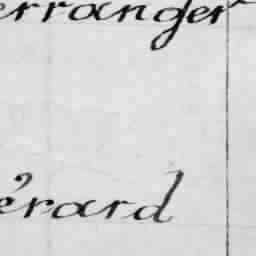 erranger
érard